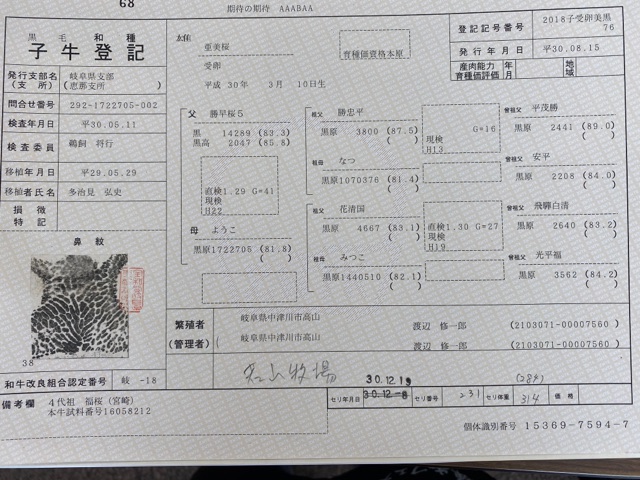 68
期待の期待 AAABAA
黒毛和種
子牛登記
発行支部名
(支所)
岐阜県支部
(恵那支所 )
問合せ番号 292-1722705-002
検査年月日 平30.05.11
検査委員 鵜飼 将行
移植年月日 平29.05.29
移植者氏名 多治見 弘史
損徴
特記
鼻紋
38
和牛改良組合認定番号 岐 -18
備考欄
4代祖 福桜(宮崎)
本牛試料番号16058212
亜美桜
受卵
平成 30年 3月 10日生
育種価資格本原
登記記号番号 2018子受卵美黒
76
発行年月日 平30.08.15
産肉能力 年
育種価評価 月
地域
父 勝早桜5
黒 14289 (83.3)
黒高 2047 (85.8)
直検1.29 G=41
現検
H22
母 ようこ
黒原1722705 (81.8)
( )
祖父 勝忠平
黒原 3800 (87.5)
( )
G=16
現検
H13
祖母 なつ
黒原1070376 (81.4)
( )
祖父 花清国
黒原 4667 (83.1)
( )
直検1.30 G=27
現検
H19
祖母 みつこ
黒原1440510 (82.1)
( )
曾祖父 平茂勝
黒原 2441 (89.0)
( )
曾祖父 安平
黒原 2208 (84.0)
( )
曾祖父 飛騨白清
黒原 2640 (83.2)
( )
曾祖父 光平福
黒原 3562 (84.2)
( )
繁殖者 岐阜県中津川市高山 渡辺 修一郎 (2103071-00007560 )
(管理者) ( 岐阜県中津川市高山 渡辺 修一郎 (2103071-00007560 )
牧場
30.12.19
(284)
セリ年月日 30.12.-8 セリ番号 231 セリ体重 314 価格
個体識別番号 15369-7594-7